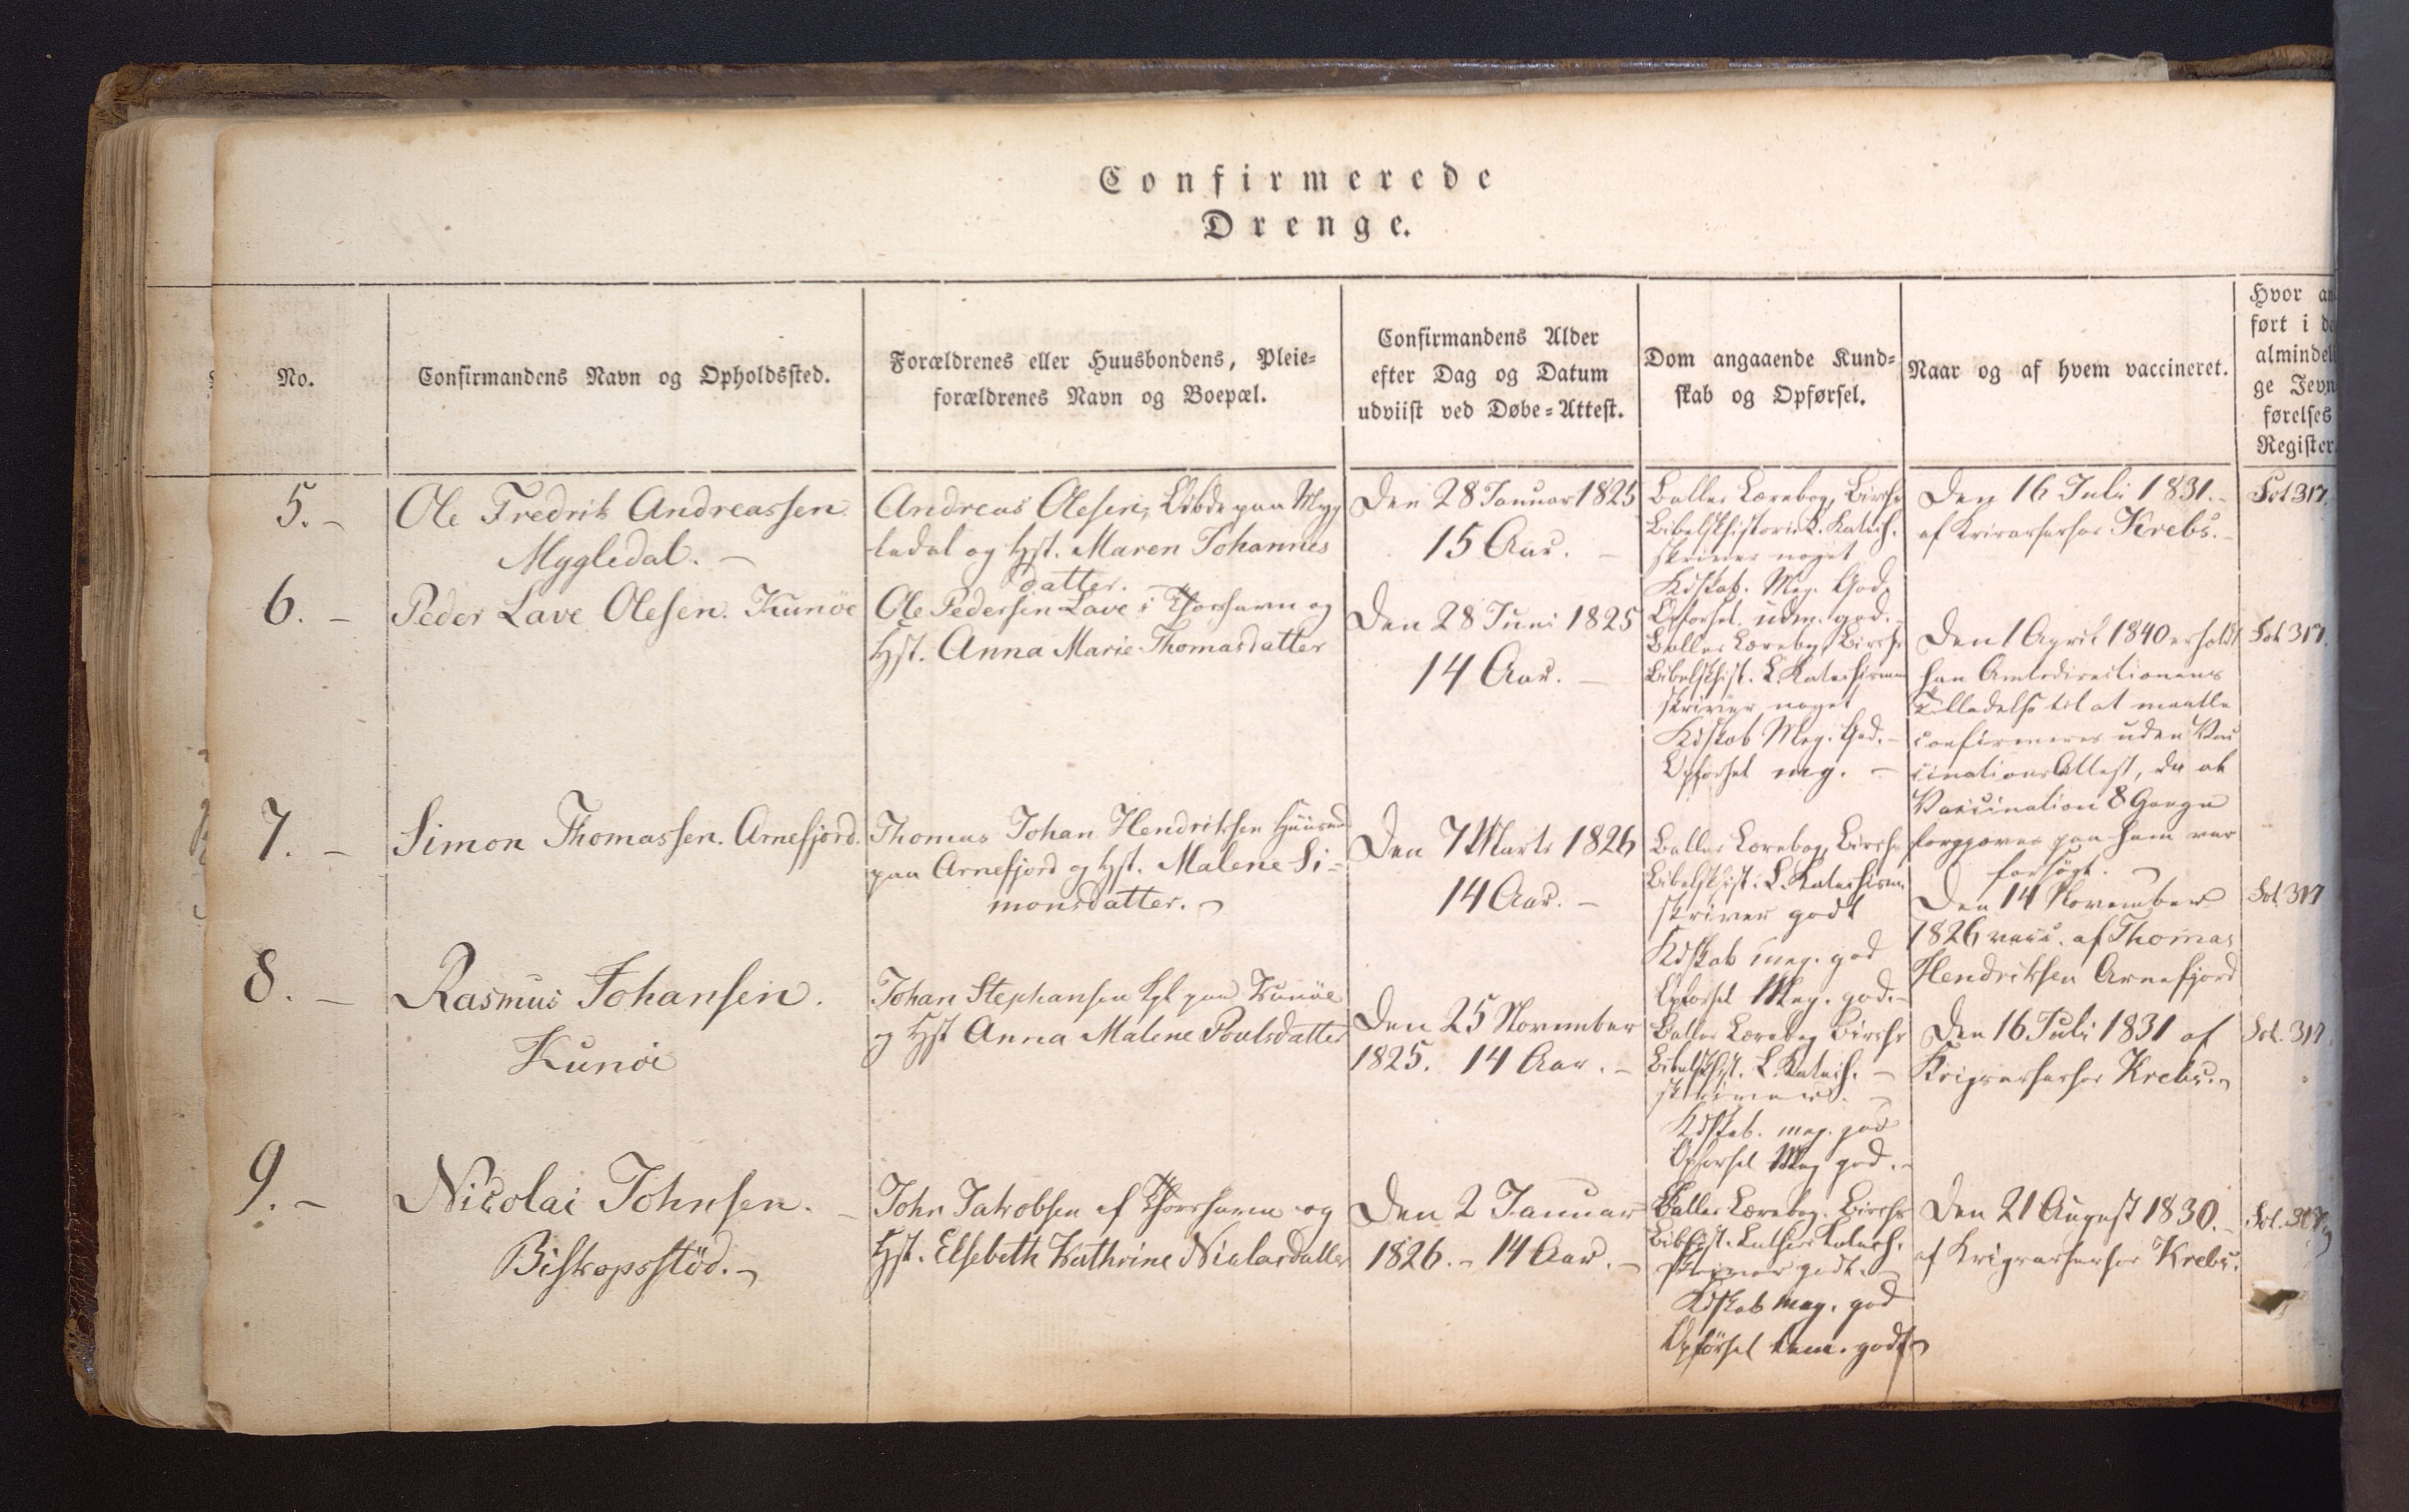 Confirmerede
Drenge.
No.
Confirmandens Navn og Opholdssted.
Forældrenes eller Huusbondens, Pleie-
forældrenes Navn og Boepæl.
Confirmandens Alder
efter Dag og Datum
udviist ved Døbe-Attest.
Dom angaaende Kund-
skab og Opførsel.
Naar og af hvem vaccineret.
Hvor an
ført i de
almindel
ge Jevn
førelses
Register.
5.-
Ole Fredrik Andreassen
Mygledal. -
Andreas Olesen, paa Myg
ledal og Hst. Maren Johannes
datter. -
Den 28 Januar 1825
15 Aar. -
Balles Lærebog, Birchs
Bibelskhistorie L. Katech.
skriver noget
Kdskab. Meg. God
Opførsel. udm. god. -
Den 16 Juli 1831. -
af Krebs. -
Fol 317.
6. -
Peder Lave Olesen. Kunøe
Ole Pedersen Lave i Thorshavn og
Hst. Anna Marie Thomasdatter
Den 28 Juni 1825
14 Aar. -
Balles Lærebog, Birchs
Bibelskhist. L. Katechismus
skriver noget
Kdskab Meg. God. -
Opførsel meg. -
Den 1 April 1840 erholdt
han Amtsdirectionens
Tilladelse til at maatte
confirmeres uden Vac
cinations Attest, da at
Vaccination 8 Gange
forgjæves paa ham var
forsögt. -
Fol 317.
7. -
Simon Thomassen. Arnefjord.
Thomas Johan Hendriksen Huusmd
paa Arnefjord og Hst. Malene Si-
monsdatter. -
Den 7 Marts 1826
14 Aar. -
Balles Lærebog, Birchs
Bibelskhist. L. Katechismus
skriver godt
Kdskab meg. god
Opførsel Meg. god. -
Den 14 November
1826 vacc. af Thomas
Hendriksen Arnefjord
Fol. 317
8. -
Rasmus Johansen.
Kunöe
Johan Stephansen paa Kunöe
og Hst Anna Malene Poulsdatter
Den 25 November
1825. 14 Aar. -
Balles Lærebog Birchs
Bibelskhist. L. Katech. -
skriver. -
Kdskab. meg. god
Opførsel Meg god. -
Den 16 Juli 1831 af
Krebs. -
Fol. 317.
9. -
Nicolai Johnsen. -
Biskopsstöd. -
John Jakobsen af Thorshavn og
Hst. Elsebeth Kathrine Niclasdatter
Den 2 Januar
1826. - 14 Aar. -
Balles Lærebog. Birchs
Bibhist. Luthers Katech.
skriver godt. -
Kdskab meg. god
Opförsel godt -
Den 21 August 1830. -
af Krebs.
Fol.